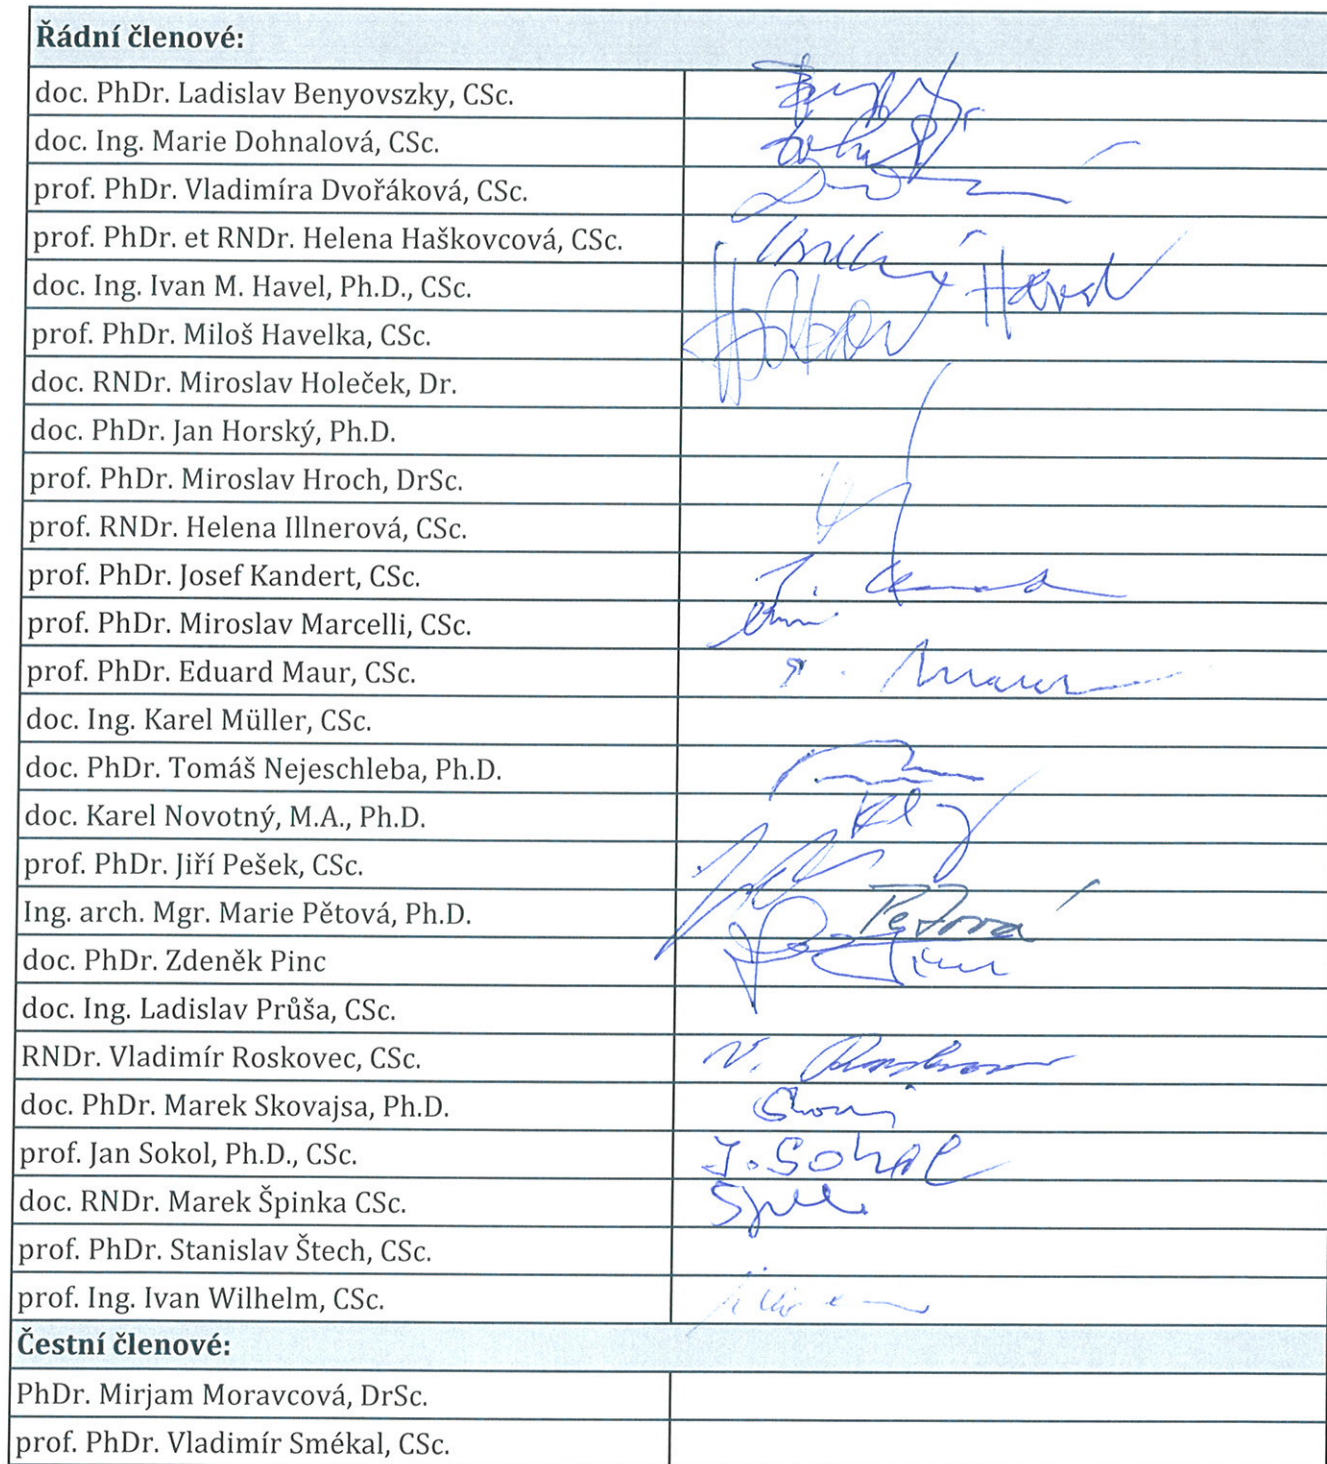 Řádní členové:
doc. PhDr. Ladislav Benyovszky, CSc.
doc. Ing. Marie Dohnalová, CSc.
prof. PhDr. Vladimíra Dvořáková, CSc.
prof. PhDr. et RNDr. Helena Haškovcová, CSc.
doc. Ing. Ivan M. Havel, Ph.D., CSc. Havel
prof. PhDr. Miloš Havelka, CSc.
doc. RNDr. Miroslav Holeček, Dr.
doc. PhDr. Jan Horský, Ph.D.
prof. PhDr. Miroslav Hroch, DrSc.
prof. RNDr. Helena Illnerová, CSc.
prof. PhDr. Josef Kandert, CSc.
prof. PhDr. Miroslav Marcelli, CSc.
prof. PhDr. Eduard Maur, CSc. Maur
doc. Ing. Karel Müller, CSc.
doc. PhDr. Tomáš Nejeschleba, Ph.D.
doc. Karel Novotný, M.A., Ph.D.
prof. PhDr. Jiří Pešek, CSc.
Ing. arch. Mgr. Marie Pětová, Ph.D. Pětová
doc. PhDr. Zdeněk Pinc
doc. Ing. Ladislav Průša, CSc.
RNDr. Vladimír Roskovec, CSc. V.
doc. PhDr. Marek Skovajsa, Ph.D.
prof. Jan Sokol, Ph.D., CSc. J. Sokol
doc. RNDr. Marek Špinka CSc.
prof. PhDr. Stanislav Štech, CSc.
prof. Ing. Ivan Wilhelm, CSc.
Čestní členové:
PhDr. Mirjam Moravcová, DrSc.
prof. PhDr. Vladimír Smékal, CSc.